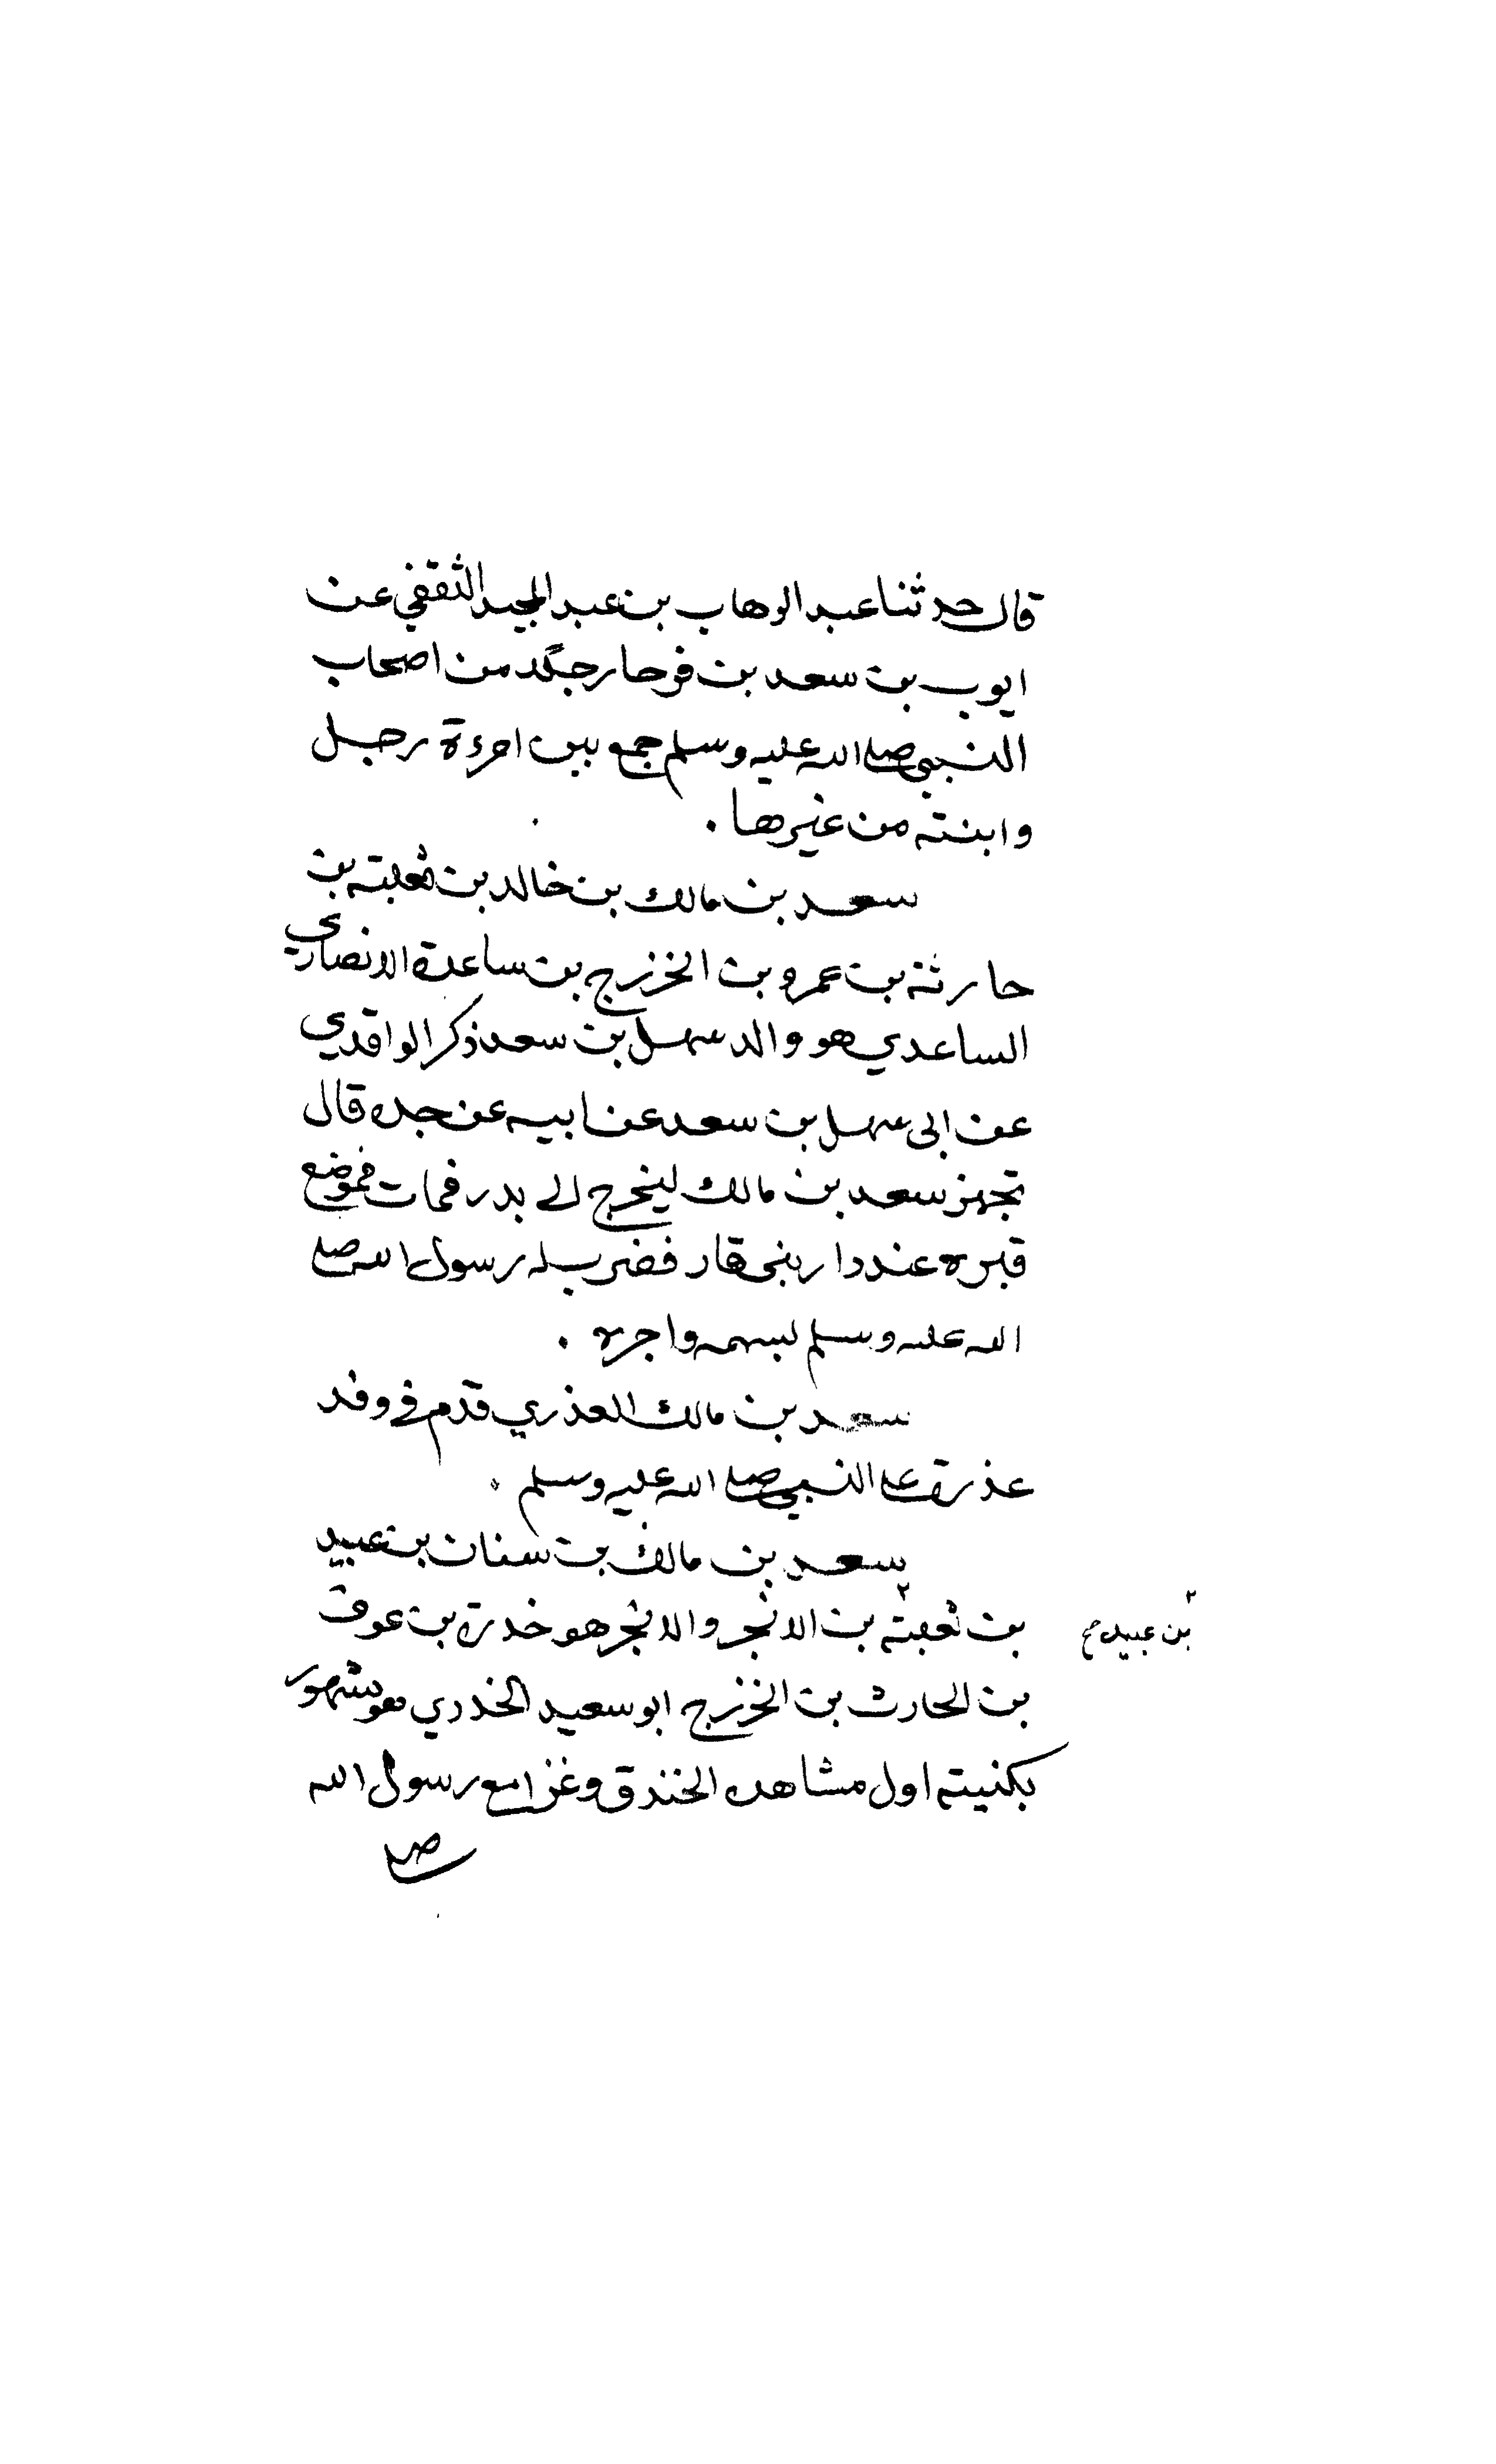 قال حدثنا عبد الوهاب بن عبد المجيد الثقفي عن
ايوب بن سعد بن قرحا رجلا من اصحاب
النبي صلى الله عليه وسلم جمع بين امرءة رجل
وابنته من غيرها .
سعد بن مالك بن خالد بن ثعلبته بن
حارثة بن عمرو بن الخزرج بن ساعدة الانصاري
الساعدي هو والد سهل بن سعد ذكر الواقدي
عن ابى سهل بن سعد عن ابيه عن جده قال
تجهز سعد بن مالك ليخرج الى بدر فمات فموضع
قبره عند دار بنى قار فضرب له رسول الله صلى
الله عليه وسلم بسهمه واجره .
سعد بن مالك العذري قدم في وفد
عذرة على النبي صلى الله عليه وسلم .
سعد بن مالك بن سنان بن عبيد
بن ثعلبة بن الابجر والابجر هو خدرة بن عوف
٢ بن عبيد ع
بن الحارث بن الخزرج ابو سعيد الخدري مشهور
بكنيته اول مشاهده الخندق وغزا مع رسول الله
صلى